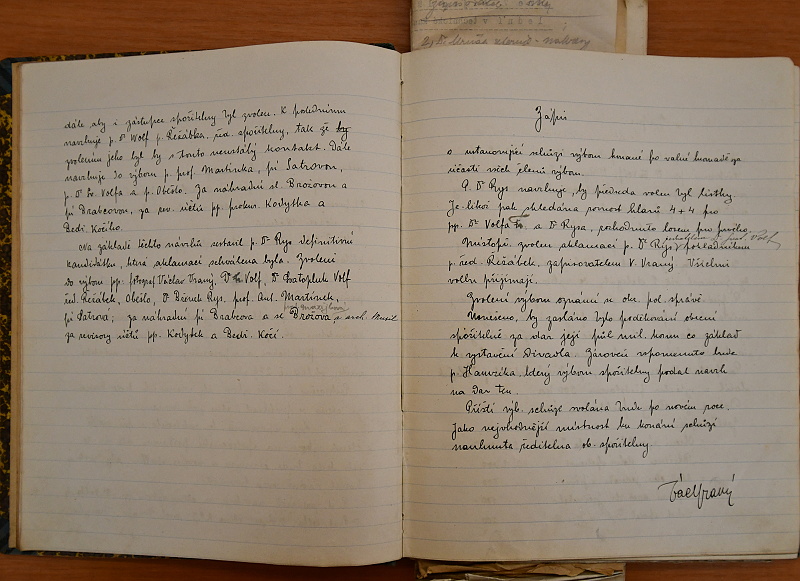 dále aby i zástupce spořitelny byl zvolen. K poslednímu
navrhuje p. Dr Wolf p. Režábka, řed. spořitelny, tak že by
zvolením jeho byl by s touto neustálý kontakt. Dále
navrhuje do výboru p. prof. Martinka, pí Satrovou,
p. Dr Sv. Volfa a p. Obešlo. Za náhradní sl. Brožovou a
pí Drabcovou, za rev. účtů pp. prokur. Kodytka a
Bedř. Kočího.
Na základě těchto návrhů sestavil p. Dr Rys definitivní
kandidátku, která aklamací schválena byla. Zvoleni
do výboru pp. fotograf Václav Vraný, Dr Volf, Dr Svatopluk Volf
řed. Režábek, Obešlo, Dr Rys, prof. Ant. Martinek,
pí Satrová; za náhradní pí Drabcova a sl Brožova, a arch. Musil
za revisory účtů pp. Kodytek a Bedř. Kočí.
Zápis
o ustanovující schůzi výboru konané po valné hromadě za
účasti všech členů výboru.
P. Dr Rys navrhuje, by předseda volen byl lístky.
Je-likož pak shledána rovnost hlasů 4 + 4 pro
pp. Dr Volfa a Dr Rysa, rozhodnuto losem pro prvého.
Místopř. zvolen aklamací p. Dr Rys, pokladníkem
p. řed. Režábek, zapisovatelem V. Vraný Všichni
volbu přijímají.
Zvolení výboru oznámí se okr. pol. správě.
Usneseno, by zasláno bylo poděkování obecní
spořitelně za dar její půl mil. korun co základ
k vystavění Divadla. Zároveň vzpomenuto bude
p. Hamzíka, který výboru spořitelny podal návrh
na dar ten.
Příští výb. schůze svolána bude po novém roce.
Jako nejvhodnější místnost ku konání schůzí
navrhnuta ředitelna ob. spořitelny.
VáclVraný